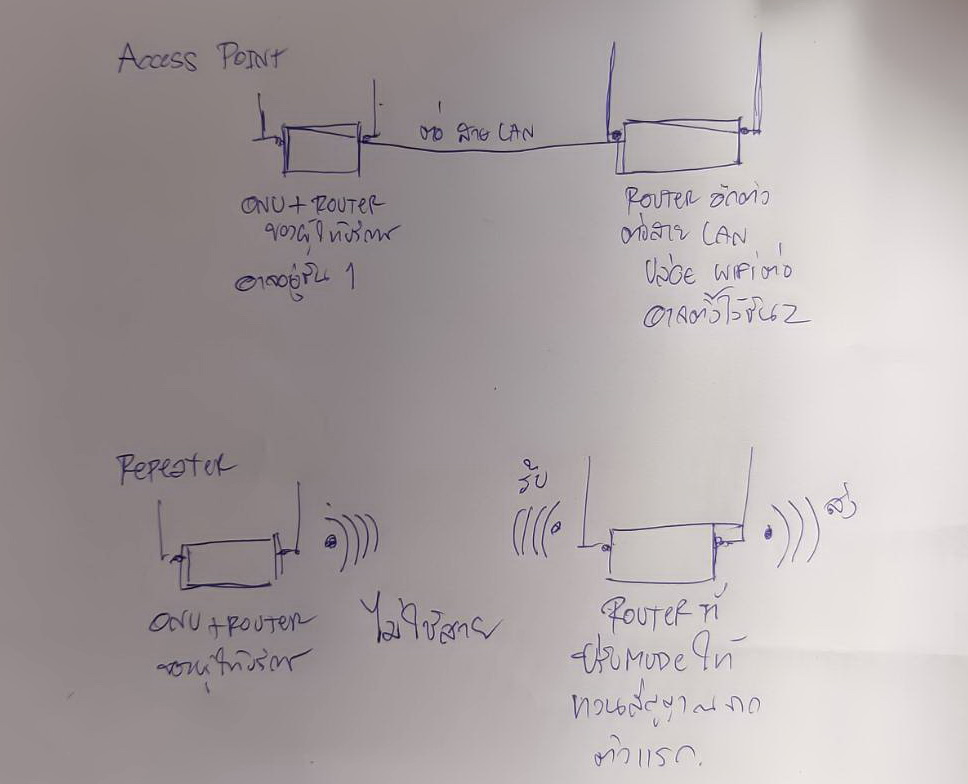 Access Point
ต่อ สาย LAN
ONU + ROUTER
ของผู้ให้บริการ
อาจอยู่ชั้น 1
ROUTER อีกตัว
ต่อสาย LAN
ปล่อย WiFi ต่อ
อาจตั้งไว้ชั้น 2
Repeater
รับ
ส่ง
ONU + ROUTER
ของผู้ให้บริการ
ไม่ใช้สาย
ROUTER ที่
ปรับ MODE ให้
ทวนสัญญาณจาก
ตัวแรก.